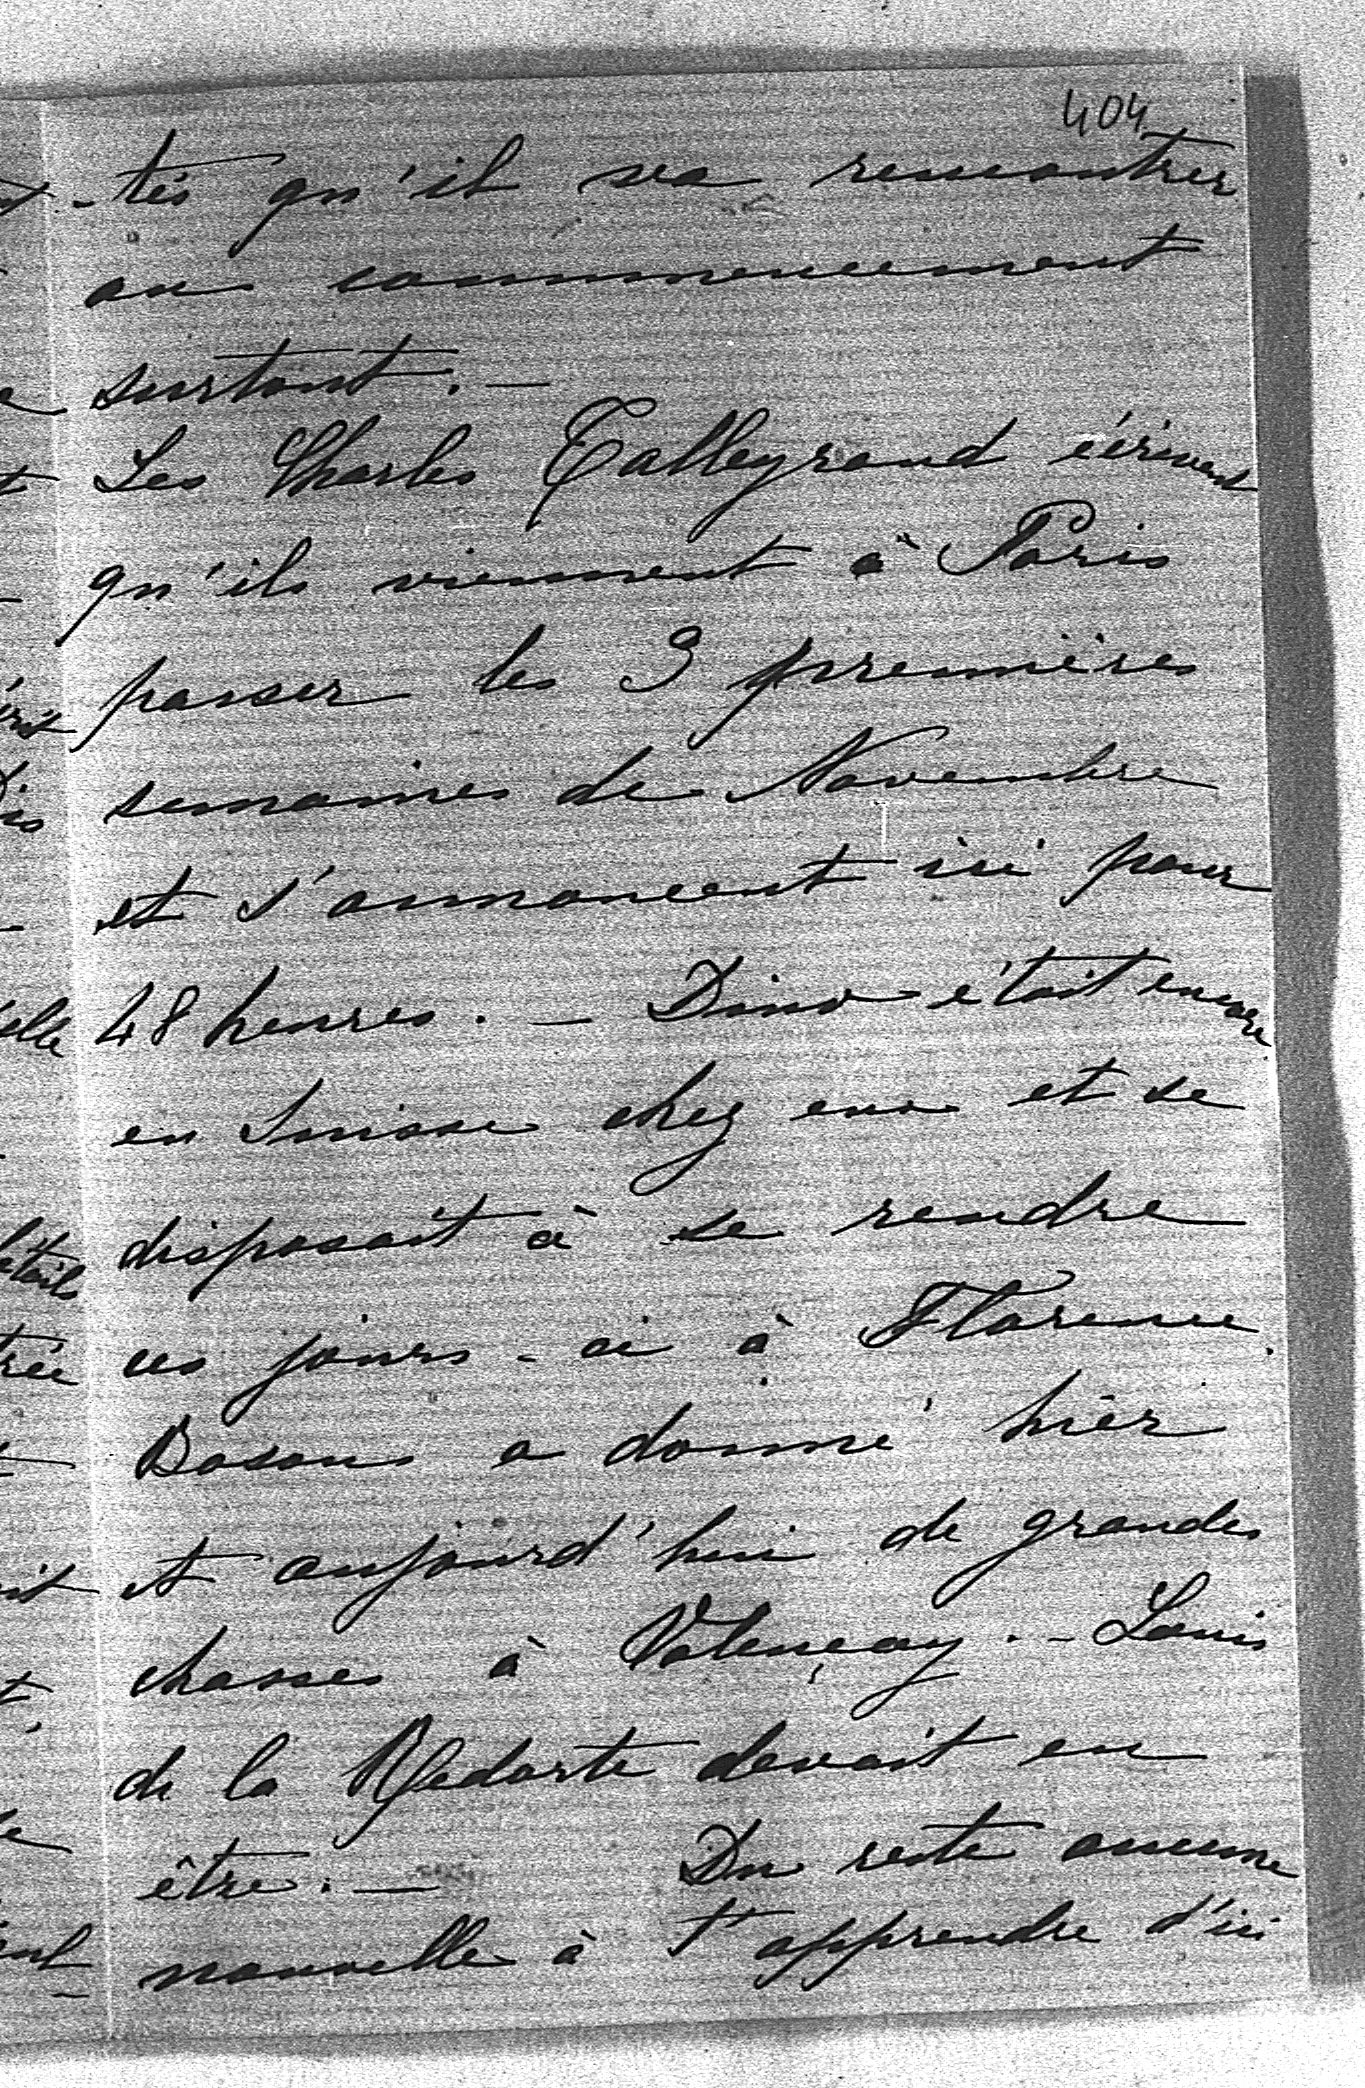 404
-tés qu'il va rencontrer
au commencement
surtout. —
Les Charles Talleyrand écrivent
qu'ils viennent à Paris
passer les 3 premières
semaines de Novembre
et s'annoncent ici pour
48 heures. — Dino était encore
en Suisse chez eux et se
disposait à se rendre
ces jours-ci à Florence.
Boson a donné hier
et aujourd'hui de grandes
chasses à Valençay. — Louis
de la Redorte devait en
être. — Du reste aucune
nouvelle à t'apprendre d'ici